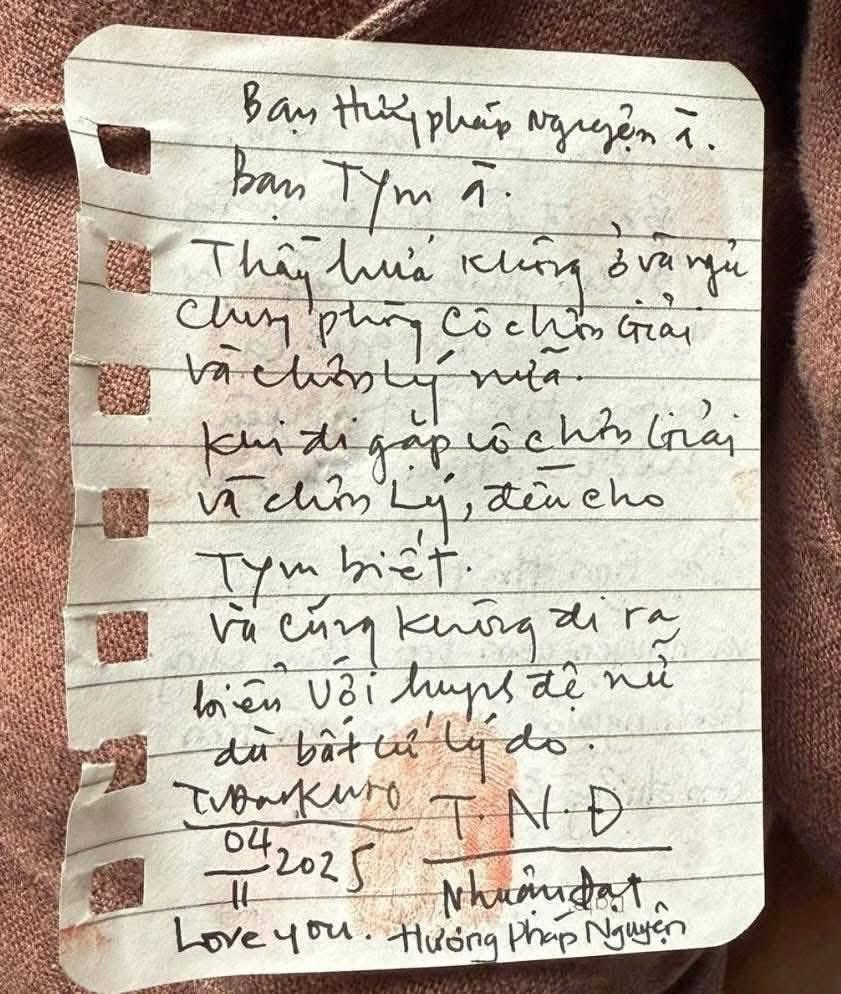 Bạn Hương pháp Nguyện à.
Bạn Tym à.
Thầy hứa không ở và ngủ
chung phòng cô chơn Giải
và chơn Lý nữa.
khi đi gặp cô chơn Giải
và chơn Lý, đều cho
Tym biết.
và cũng không đi ra
biển với huynh đệ nữ
dù bất cứ lý do.
T.N.Đ
04/11 2025
Nhuận Đạt
Love you. Hương Pháp Nguyện